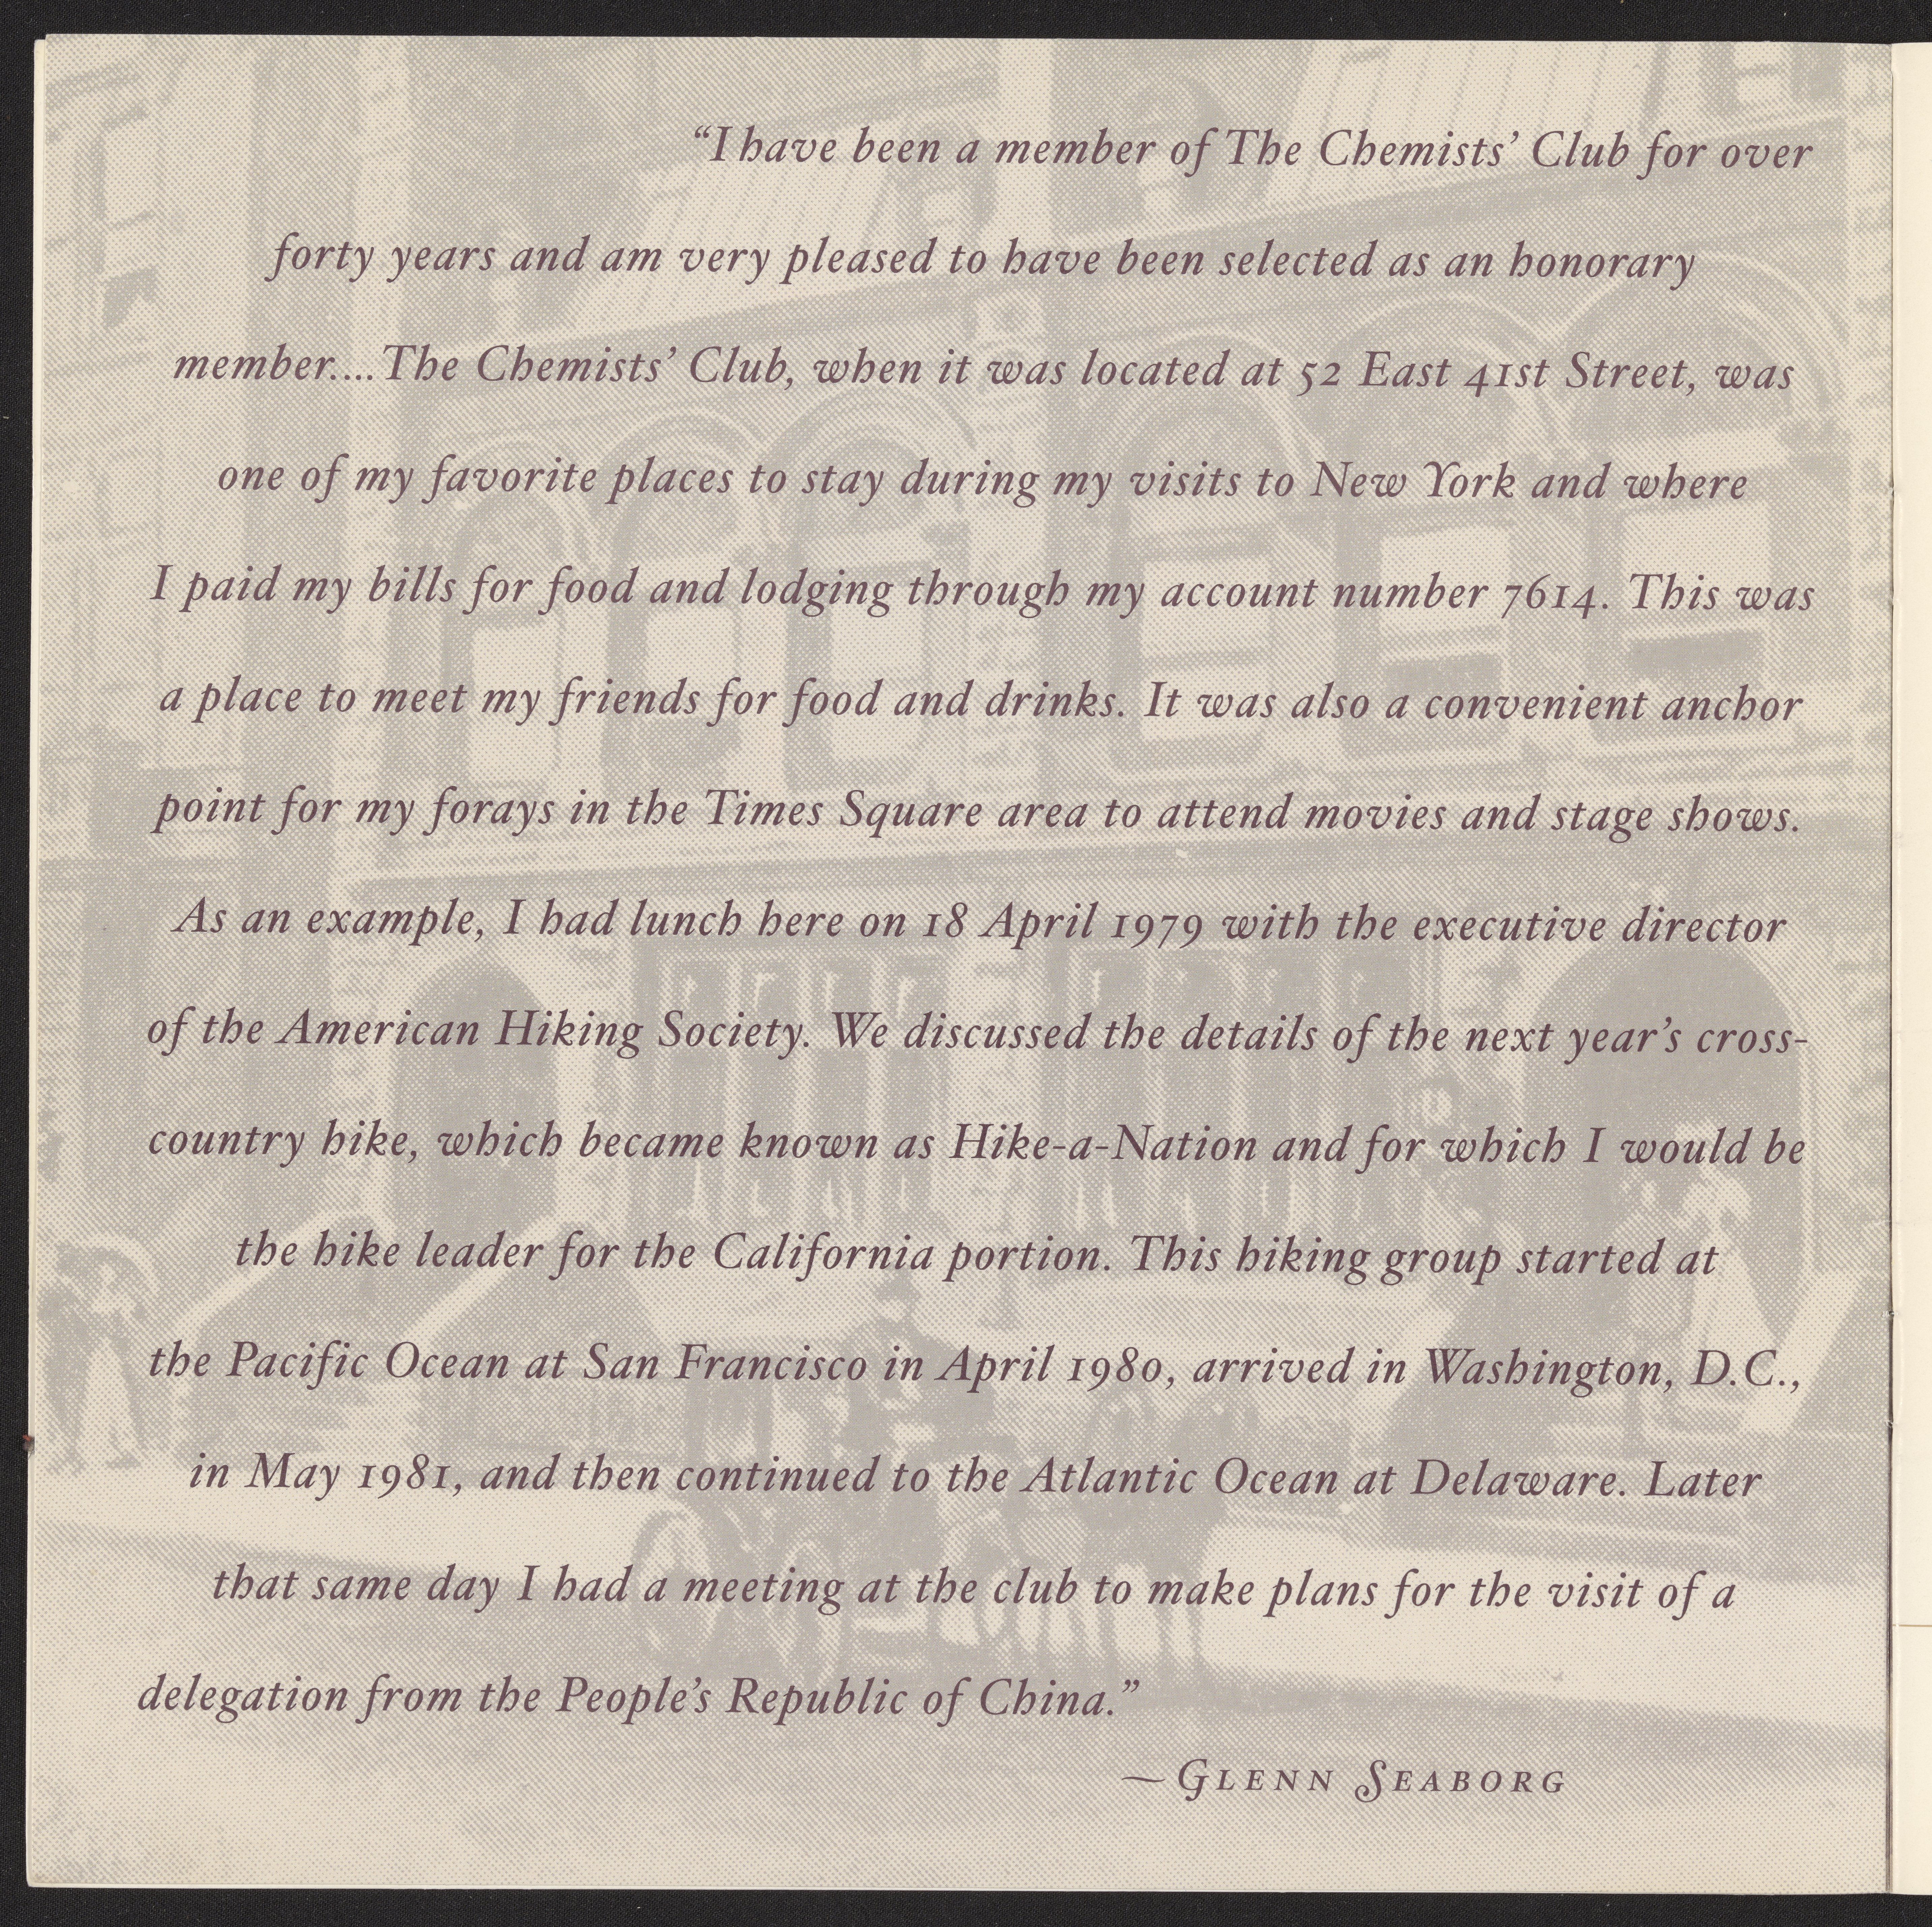 “I have been a member of The Chemists’ Club for over
forty years and am very pleased to have been selected as an honorary
member....The Chemists’ Club, when it was located at 52 East 41st Street, was
one of my favorite places to stay during my visits to New York and where
I paid my bills for food and lodging through my account number 7614. This was
a place to meet my friends for food and drinks. It was also a convenient anchor
point for my forays in the Times Square area to attend movies and stage shows.
As an example, I had lunch here on 18 April 1979 with the executive director
of the American Hiking Society. We discussed the details of the next year’s cross-
country hike, which became known as Hike-a-Nation and for which I would be
the hike leader for the California portion. This hiking group started at
the Pacific Ocean at San Francisco in April 1980, arrived in Washington, D.C.,
in May 1981, and then continued to the Atlantic Ocean at Delaware. Later
that same day I had a meeting at the club to make plans for the visit of a
delegation from the People’s Republic of China.”
—GLENN SEABORG